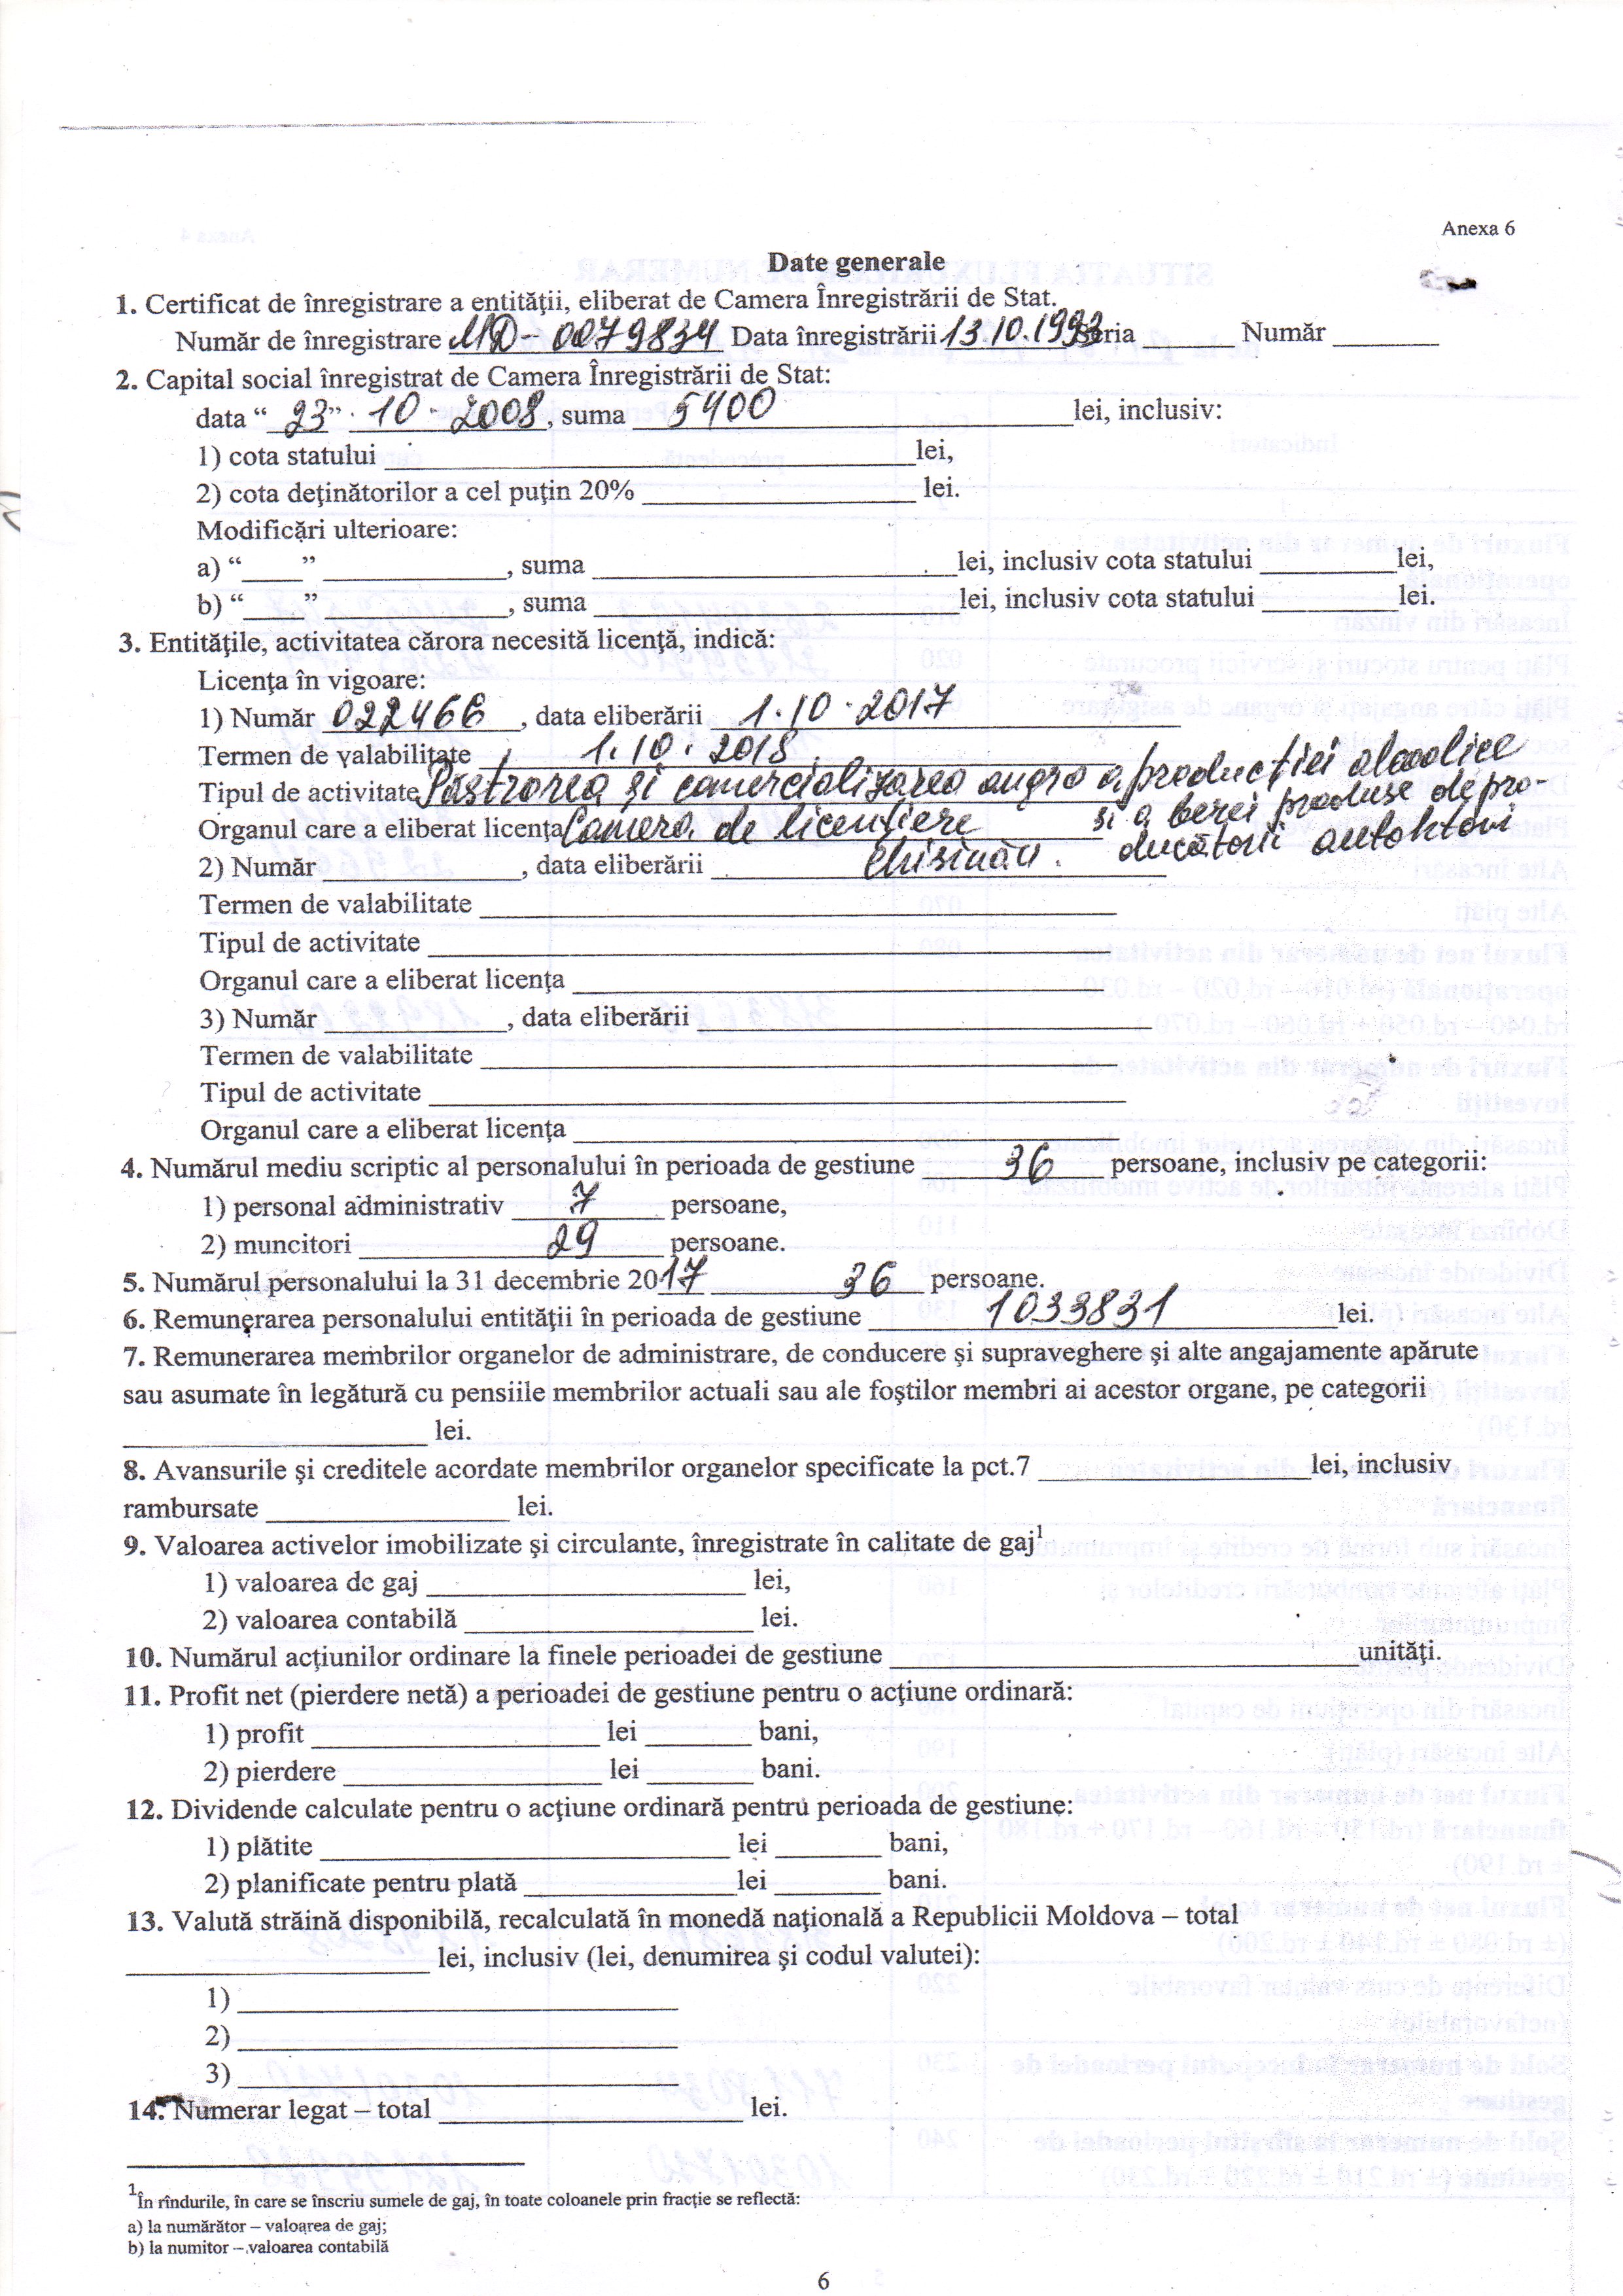 Anexa 6
Date generale
1. Certificat de înregistrare a entităţii, eliberat de Camera Înregistrării de Stat.
Număr de înregistrare MD- 0079834 Data înregistrării 13.10.1993 Seria ________ Număr ________
2. Capital social înregistrat de Camera Înregistrării de Stat:
data “ 23 ” . 10 . 2008, suma 5400 lei, inclusiv:
1) cota statului ________ lei,
2) cota deţinătorilor a cel puţin 20% ________ lei.
Modificări ulterioare:
a) “____” ________, suma ________ lei, inclusiv cota statului ________ lei,
b) “____” ________, suma ________ lei, inclusiv cota statului ________ lei.
3. Entităţile, activitatea cărora necesită licenţă, indică:
Licenţa în vigoare:
1) Număr 022466, data eliberării 1.10.2017
Termen de valabilitate 1.10.2018
Tipul de activitate Păstrarea şi comercializarea angro a producţiei alcoolice
şi a berei produse de pro-
Organul care a eliberat licenţa Camera de licenţiere
ducătorii autohtoni
2) Număr ________, data eliberării Chisinău.
Termen de valabilitate ________
Tipul de activitate ________
Organul care a eliberat licenţa ________
3) Număr ________, data eliberării ________
Termen de valabilitate ________
Tipul de activitate ________
Organul care a eliberat licenţa ________
4. Numărul mediu scriptic al personalului în perioada de gestiune 36 persoane, inclusiv pe categorii:
1) personal administrativ 7 persoane,
2) muncitori 29 persoane.
5. Numărul personalului la 31 decembrie 2017 36 persoane.
6. Remunerarea personalului entităţii în perioada de gestiune 1033831 lei.
7. Remunerarea membrilor organelor de administrare, de conducere şi supraveghere şi alte angajamente apărute
sau asumate în legătură cu pensiile membrilor actuali sau ale foştilor membri ai acestor organe, pe categorii
________ lei.
8. Avansurile şi creditele acordate membrilor organelor specificate la pct.7 ________ lei, inclusiv
rambursate ________ lei.
9. Valoarea activelor imobilizate şi circulante, înregistrate în calitate de gaj¹
1) valoarea de gaj ________ lei,
2) valoarea contabilă ________ lei.
10. Numărul acţiunilor ordinare la finele perioadei de gestiune ________ unităţi.
11. Profit net (pierdere netă) a perioadei de gestiune pentru o acţiune ordinară:
1) profit ________ lei ________ bani,
2) pierdere ________ lei ________ bani.
12. Dividende calculate pentru o acţiune ordinară pentru perioada de gestiune:
1) plătite ________ lei ________ bani,
2) planificate pentru plată ________ lei ________ bani.
13. Valută străină disponibilă, recalculată în monedă naţională a Republicii Moldova – total
________ lei, inclusiv (lei, denumirea şi codul valutei):
1) ________
2) ________
3) ________
14. Numerar legat – total ________ lei.
¹În rîndurile, în care se înscriu sumele de gaj, în toate coloanele prin fracţie se reflectă:
a) la numărător – valoarea de gaj;
b) la numitor – valoarea contabilă
6